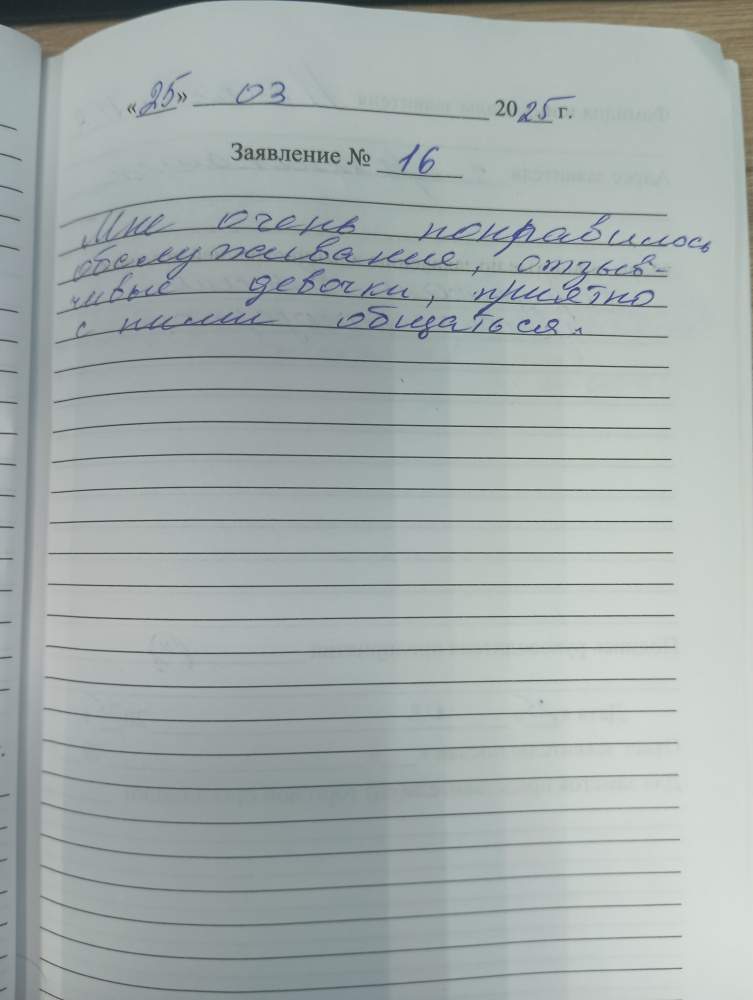 «25» 03 2025 г.
Заявление № 16
Мне очень понравилось
обслуживание, отзыв-
чивые девочки, приятно
с ними общаться.